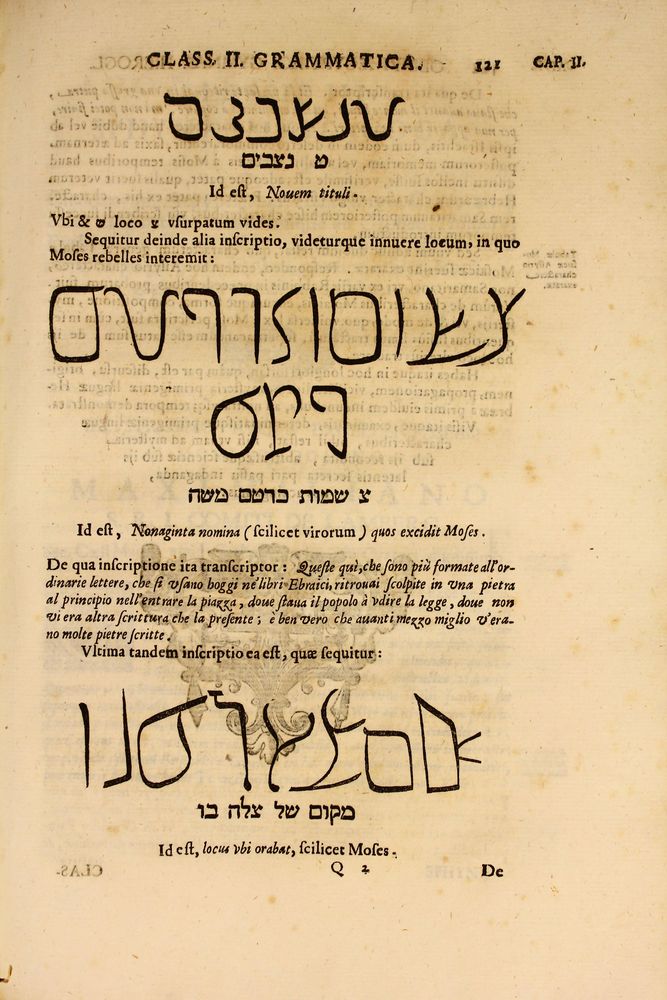 CLASS. II. GRAMMATICA. 121 CAP. II.
ט נצבים
Id eſt, Novem tituli.
Vbi & ש loco צ vſurpatum vides.
Sequitur deinde alia inſcriptio, videturque innuere locum, in quo
Moſes rebelles interemit:
צ שמות כרטם משה
Id eſt, Nonaginta nomina (ſcilicet virorum) quos excidit Moſes.
De qua inſcriptione ita tranſcriptor: Queſte quì, che ſono più formate all'or-
dinarie lettere, che ſi vſano hoggi ne' libri Ebraici, ritrouai ſcolpite in vna pietra
al principio nell'entrare la piazza, doue ſtaua il popolo à vdire la legge, doue non
vi era altra ſcrittura che la preſente; è ben vero che auanti mezzo miglio v'era-
no molte pietre ſcritte.
Vltima tandem inſcriptio ea eſt, quæ ſequitur:
מקום של צלה בו
Id eſt, locus vbi orabat, ſcilicet Moſes.
Q 2 De